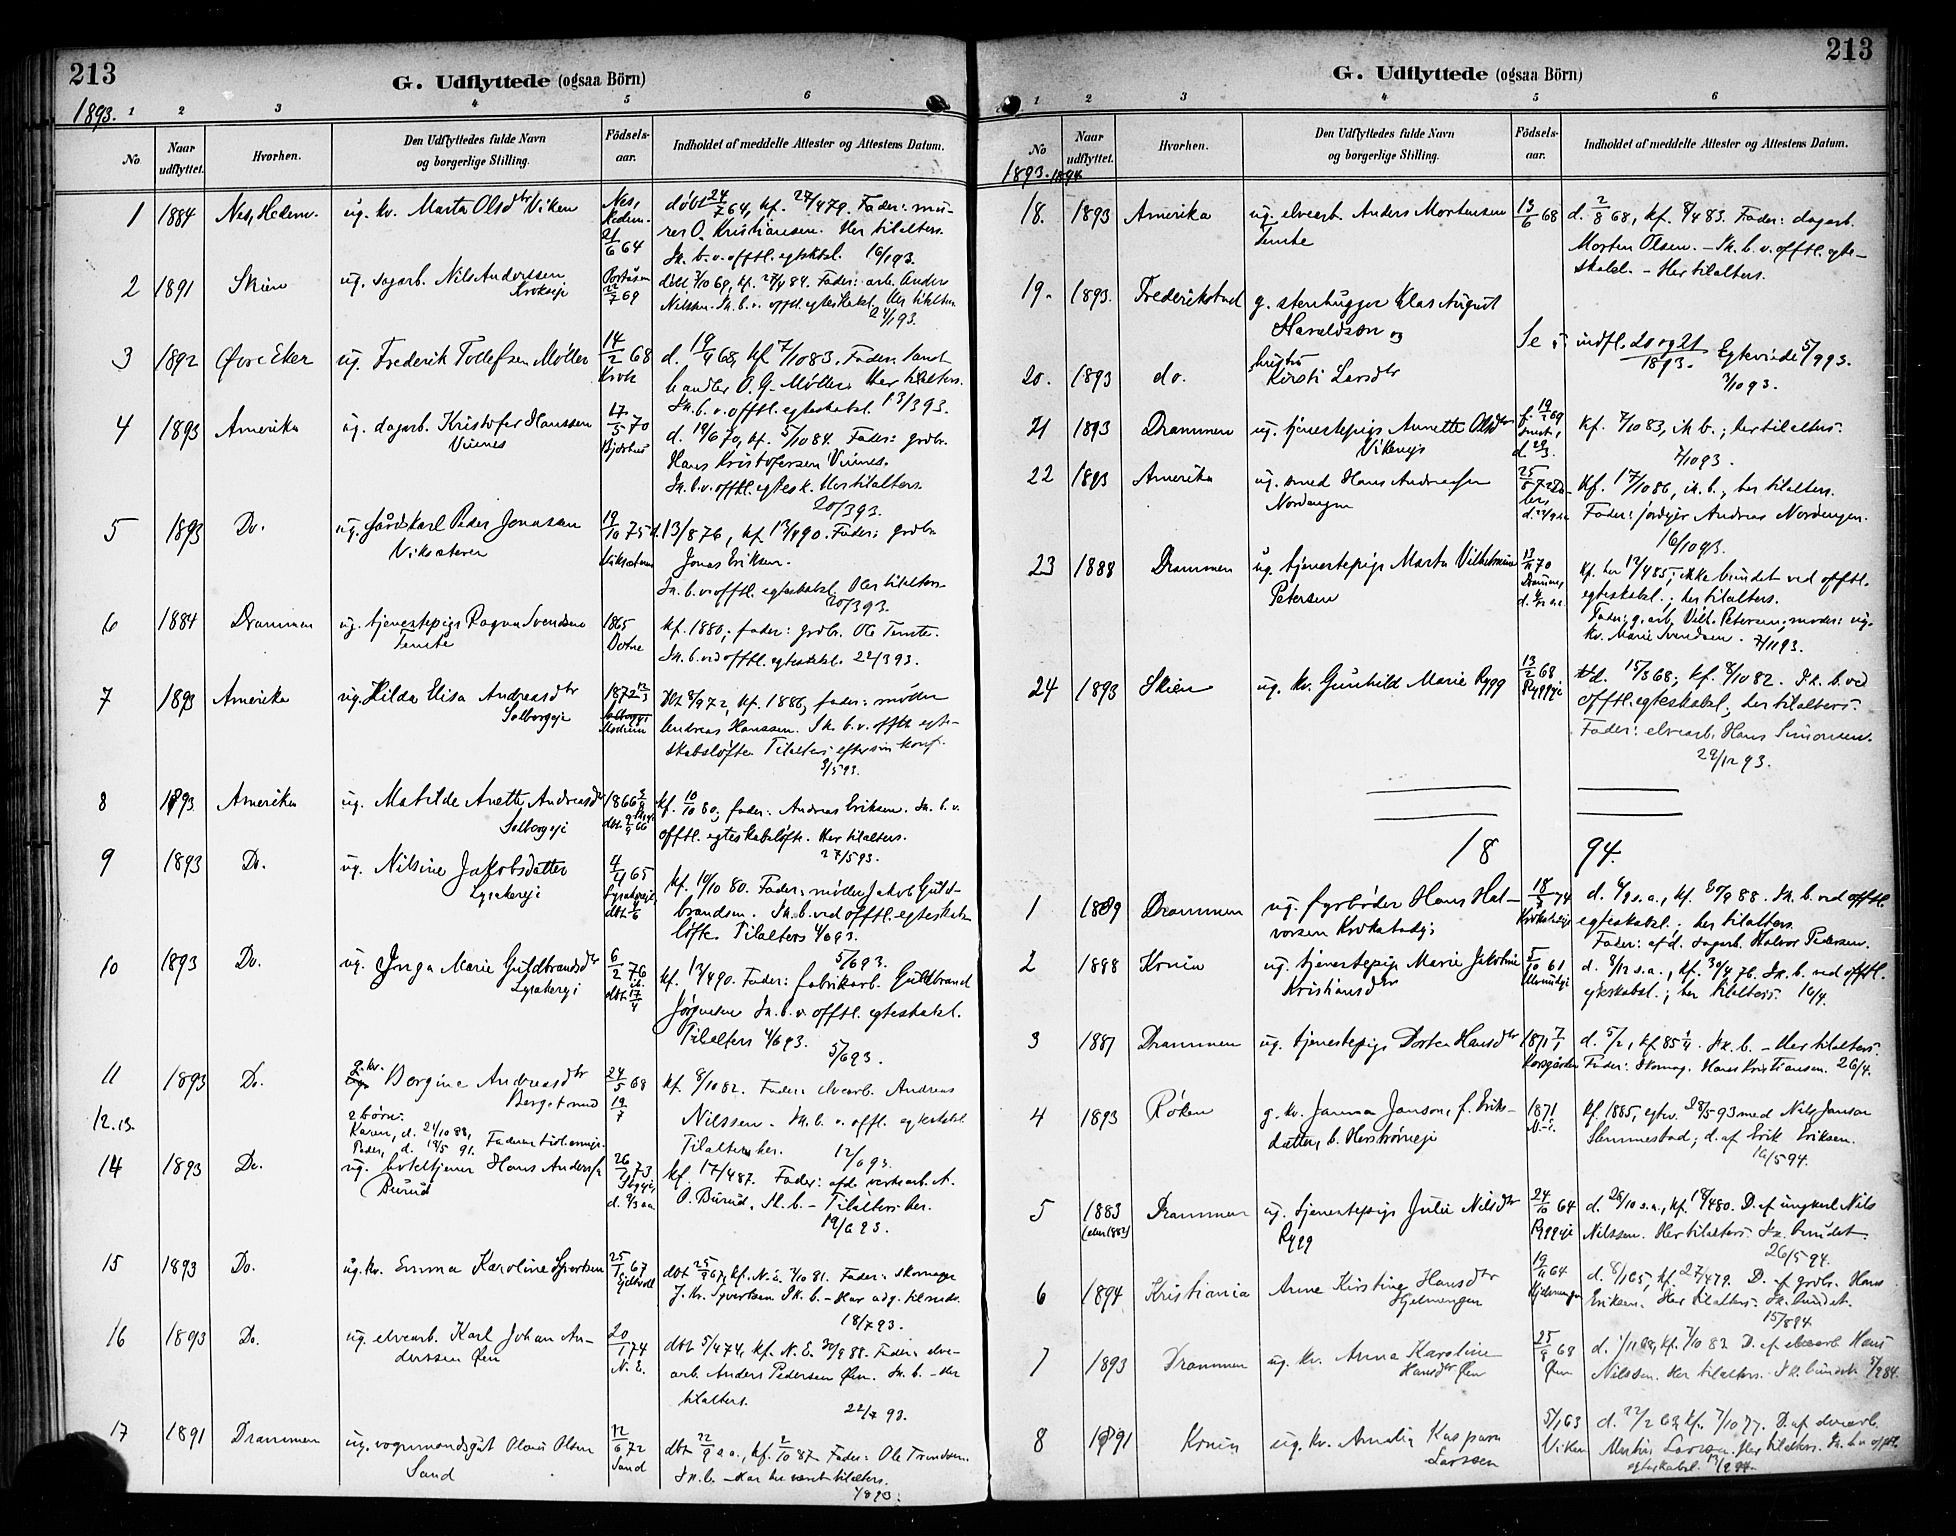 213
G. Udflyttede (ogsaa Börn)
1893.
1 2 3 4 5 6
No
Naar udflyttet.
Hvorhen.
Den Udflyttedes fulde Navn og borgerlige Stilling.
Födsels-aar.
Indholdet af meddelte Attester og Attestens Datum.
1 1884 Nes, Hedem. ug. kv. Marta Olsdtr Viken Nes, Hedem. 21/6 64 døbt 24/7 64, kf. 27/4 79. Fader: mu-
rer O. Kristiansen. Her tilalters.
Ik. b. v. offtl. egteskabl. 16/1 93.
2 1891 Skien ug. sagarb. Nils Anderssen
Krokeje 22/7 69 dbt 3/10 69, kf. 27/4 84. Fader: arb. Anders
Nilssen. Ik. b. v. offtl. egteskabl. Her tilalters
24/1 93.
3 1892 Øvre Eker ug. Frederik Tollefsen Møller 14/2 68 Krok d. 19/4 68, kf. 7/10 83. Fader: Land-
handler O. G. Møller. Her tilalters.
Ik. b. v. offtl. egteskabl. 13/3 93.
4 1893 Amerika ug. dagarb. Kristofer Hanssen
Viines 17/5 70 d. 19/6 70, kf. 5/10 84. Fader: grdbr.
Hans Kristofersen Viines.
Ik. b. v. offtl. egtesk. Her tilalters.
20/3 93.
5 1893 Do. ug. gårdskarl Peder Jonassen
Viksæteren 19/10 75 d. 13/8 76, kf. 13/4 90. Fader: grdbr.
Jonas Eriksen.
Ik. b. v. offtl. egteskabl. Her tilalters
20/3 93.
6 1884 Drammen ug. tjenestepige Ragna Svendsen
Temte 1865 kf. 1880; fader: grdbr. Ole Temte.
Ik. b. ved offtl. egteskabl. 22/3 93.
7 1893 Amerika ug. Hilda Elisa Andreasdtr
Solborgeje 1872 Modum dbt 8/9 72, kf. 1886, fader: møller
Andreas Hanssen. Ik. b. v. offtl. egte-
skabsløfte. Tilalters efter sin konf.
3/5 93.
8 1893 Amerika ug. Matilde Anette Andreasdtr
Solborgeje 1866 kf. 10/10 80, fader: Andreas Eriksen. Ik. b. v.
offtl. egteskabsløfte. Her tilalters.
27/5 93.
9 1893 Do. ug. Nilsine Jakobsdatter
Lysakereje 4/4 65 kf. 10/10 80. Fader: møller Jakob Guld-
brandsen. Ik. b. ved offtl. egteskabs-
løfte. Tilalters 4/6 93.
5/6 93.
10 1893 Do. ug. Inga Marie Guldbrandsdtr
Lysakereje 6/2 76 kf. 13/4 90. Fader: fabrikarb. Guldbrand
Jørgensen. Ik. b. v. offtl. egteskabl.
Tilalters 4/6 93.
5/6 93.
11 1893 Do. g. kv. Bergine Andreasdtr
Bergstrand 24/5 68 kf. 8/10 82. Fader: elvearb. Andreas
12.13. 2 børn:
Karen, d. 24/10 88,
Peder, d. 18/5 91. Nilssen. Ik. b. v. offtl. egteskabl.
Tilalters her. 12/6 93.
14 1893 Do. ug. hoteltjener Hans Anderss.
Burud 26/1 73 kf. 17/4 87. Fader: afd. verksarb. A.
O. Burud. Ik. b. – Tilalters her.
19/6 93.
15 1893 Do. ug. kv. Emma Karoline Syvertsen 25/1 67 kf. N. E. 2/10 81. Fader: skomager
J. Kr. Syvertsen. Ik. b. – Har adg. til nadv.
18/7 93.
16 1893 Do. ug. elvearb. Karl Johan An-
derssen Øen 20/1 74 N. E. dbt 5/4 74, kf. N. E. 30/9 88. Fader: elve-
arb. Anders Pedersen Øen. Ik. b. – Her
tilalters.
22/7 93.
17 1891 Drammen ug. vognmandsgut Olaus Olsen
Sand 12/6 72 Sand dbt 22/9 s. a., kf. 2/10 87. Fader: Ole Trondsen.
Ik. b. – Har her været tilalters.
1/8 93.
213
G. Udflyttede (ogsaa Börn)
1 2 3 4 5 6
No
Naar udflyttet.
Hvorhen.
Den Udflyttedes fulde Navn og borgerlige Stilling.
Födsels-aar.
Indholdet af meddelte Attester og Attestens Datum.
1893. 1894
18. 1893 Amerika ug. elvearb. Anders Mortensen
Temte 13/6 68 d. 2/8 68, kf. 8/4 83. Fader: dagarb.
Morten Olsen. – Ik. b. v. offtl. egte-
skabl. – Her tilalters.
19. 1893. Frederikstad g. stenhugger Klas August
Haraldson og
20. 1893 do. hustru
Kirsti Larsdtr Se indfl. 20 og 21 1893. Egteviede 5/9 93.
3/10 93.
21 1893 Drammen ug. tjenestepige Annette Olsdtr
Vikeneje kf. 7/10 83, ik. b.; her tilalters.
7/10 93.
22 1893 Amerika ug. smed Hans Andreassen
Nordengen kf. 17/10 86, ik. b., her tilalters.
Fader: jordejer Andreas Nordengen.
16/10 93.
23 1888 Drammen ug. tjenestepige Marta Vilhelmine
Petersen 13/11 70 kf. her 12/4 85; ikke bundet ved offtl.
egteskabl.; her tilalters.
Fader: g. arb. Vilh. Petersen, moder: ug.
kv. Marie Svendsen. 7/11 93.
24 1893 Skien ug. kv. Gunhild Marie Rygg 13/2 68 Ryggeje d. 15/3 68, kf. 8/10 82. Ik. b. ved
offtl. egteskabl., her tilalters.
Fader: elvearb. Hans Simonsen.
29/12 93.
18 94.
1 1889 Drammen ug. fyrbøder Hans Hal-
vorsen Krokstadeje 18/3 74 d. s. a., kf. 30/9 88. Ik. b. ved offtl.
egteskabl.; her tilalters.
Fader: afd. sagarb. Halvor Pedersen.
2 1888 Knuin ug. tjenestepige Marie Jakobine
Kristiansdtr 5/10 61 d. 8/12 s. a., kf. 30/4 76. Ik. b. ved offtl.
egteskabl.; her tilalters. 16/4.
3 1887 Drammen ug. tjenestepige Dortea Hansdtr 1871 Korsgården d. 5/2, kf. 85. Ik. b. – Her tilalters.
Fader: Skomag. Hans Kristiansen. 26/4.
4 1893 Røken g. kv. Janna Janson, f. Eriks-
datter, b. Herstrømeje 1871 N. E. kf. 1885, egtev. 28/5 93 med Nils Janson
Slemmestad; d. af Erik Eriksen.
16/5 94.
5 1883
(eller 1882) Drammen ug. tjenestepige Julie Nilsdtr
Rygg 24/8 64 Ryggeje d. 26/10 s. a., kf. 18/4 80. D. af ungkarl Nils
Nilssen. Her tilalters. Ik. bundet.
26/5 94.
6 1894 Kristiania Anne Kirstine Hansdtr
Hjelmengen 19/11 64 Hjelmengen d. 8/1 65, kf. 27/4 79. D. af grdbr. Hans
Eriksen. Her tilalters. Ik. bundet.
15/8 94.
7 1893 Drammen ug. kv. Anna Karoline
Hansdtr Øen 25/9 68 Øen d. 1/11 68, kf. 7/10 83. D. af elvearb. Hans
Nilssen. Her tilalters. Ik. bundet.
8 1891 Knuin ug. kv. Amalie Kaspara
Larssen 5/1 63 Viken d. 22/2 63, kf. 7/10 77. D. af elvearb.
Martin Larssen. Her tilalters. Ik. b. v. offtl.
egteskabl.